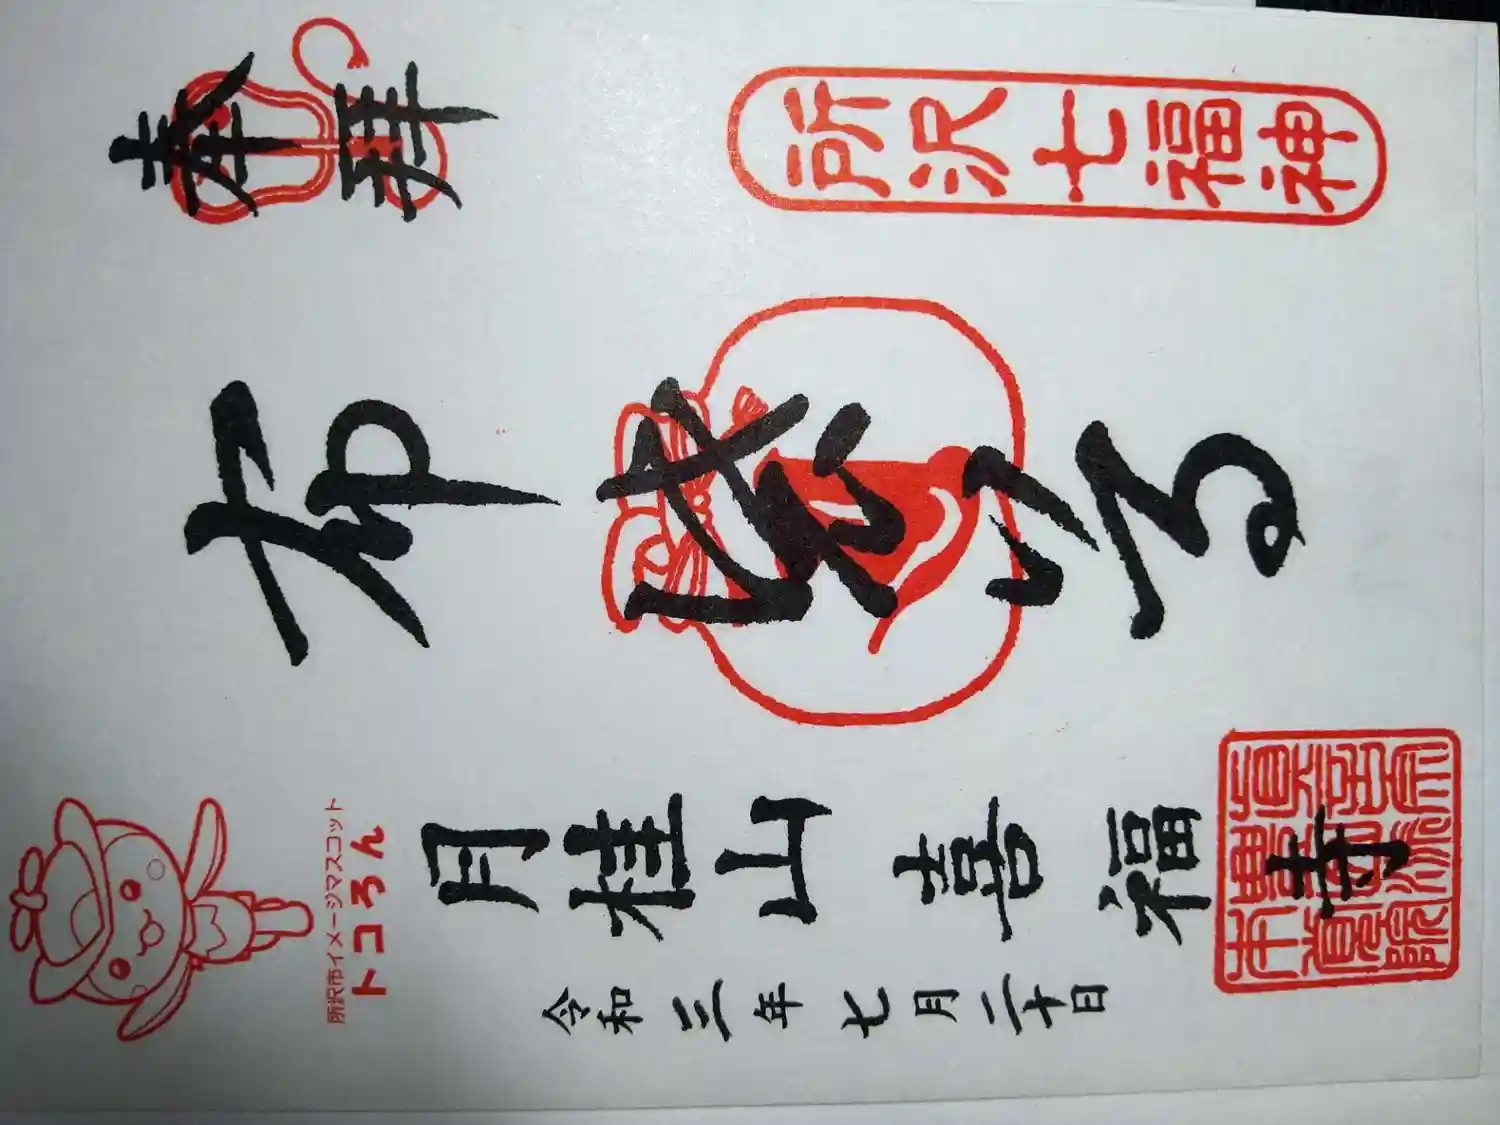 奉拝
所沢七福神
布袋尊
月桂山喜福寺
令和三年七月二十日
所沢市イメージマスコット
トコろん